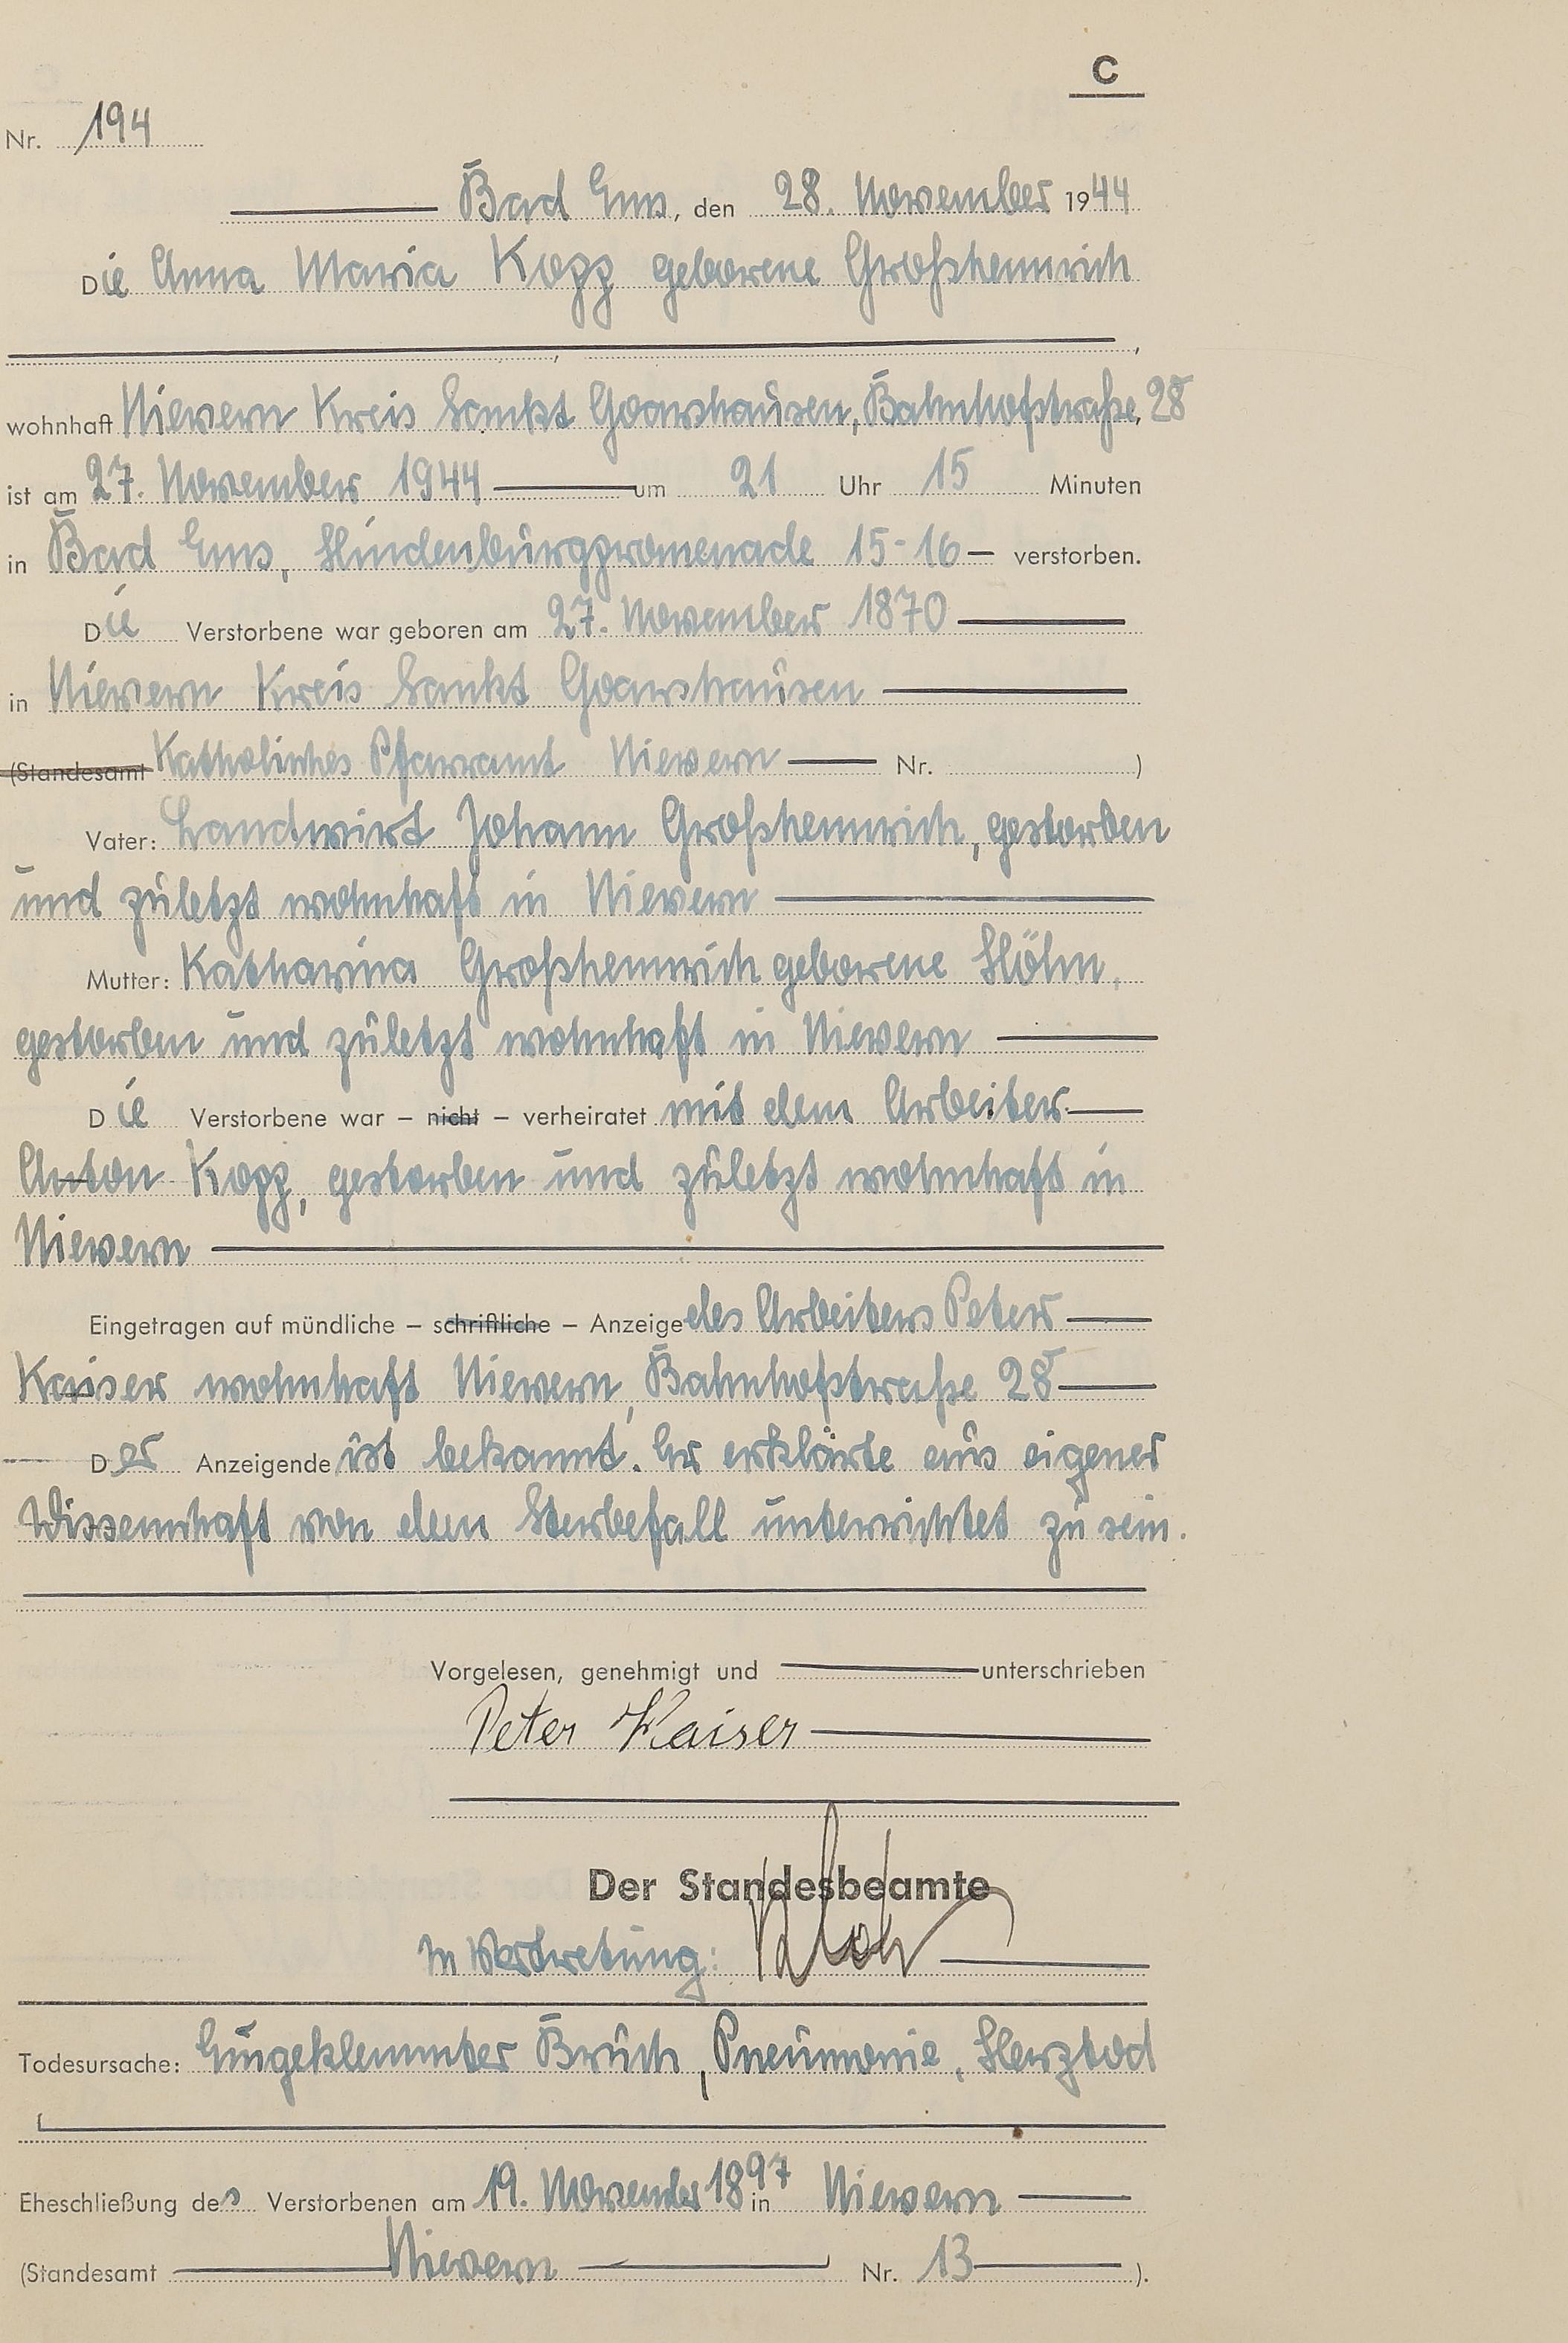 C
Nr. 194
Bad Ems, den 28. November 1944
Die Anna Maria Kopp geborene Großhennrich
wohnhaft Nievern Kreis Sankt Goarshausen, Bahnhofstraße 28
ist am 27. November 1944 um 21 Uhr 15 Minuten
in Bad Ems, Hindenburgpromenade 15-16 verstorben.
Die Verstorbene war geboren am 27. November 1870
in Nievern Kreis Sankt Goarshausen
(Standesamt Katholisches Pfarramt Nievern Nr. )
Vater: Landwirt Johann Großhennrich, gestorben
und zuletzt wohnhaft in Nievern
Mutter: Katharina Großhennrich geborene Höhn,
gestorben und zuletzt wohnhaft in Nievern
Die Verstorbene war – nicht – verheiratet mit dem Arbeiter
Anton Kopp, gestorben und zuletzt wohnhaft in
Nievern
Eingetragen auf mündliche – schriftliche – Anzeige des Arbeiters Peter
Kaiser wohnhaft Nievern, Bahnhofstraße 28
Der Anzeigende ist bekannt. Er erklärte aus eigener
Wissenschaft von dem Sterbefall unterrichtet zu sein.
Vorgelesen, genehmigt und unterschrieben
Peter Kaiser
Der Standesbeamte
In Vertretung:
Todesursache: Eingeklemmter Bruch, Pneumonie, Herztod
Eheschließung des Verstorbenen am 19. November 1897 in Nievern
(Standesamt Nievern Nr. 13 ).